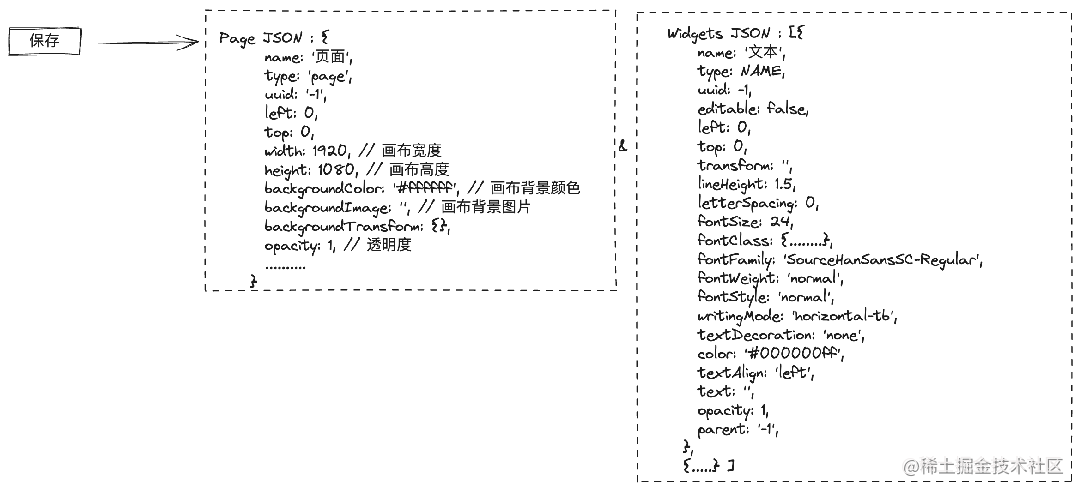 保存
Page JSON : {
name: '页面',
type: 'page',
uuid: '-1',
left: 0,
top: 0,
width: 1920, // 画布宽度
height: 1080, // 画布高度
backgroundColor: '#ffffff', // 画布背景颜色
backgroundImage: '', // 画布背景图片
backgroundTransform: {},
opacity: 1, // 透明度
..........
}
&
Widgets JSON : [{
name: '文本',
type: NAME,
uuid: -1,
editable: false,
left: 0,
top: 0,
transform: '',
lineHeight: 1.5,
letterSpacing: 0,
fontSize: 24,
fontClass: {........},
fontFamily: 'SourceHanSansSC-Regular',
fontWeight: 'normal',
fontStyle: 'normal',
writingMode: 'horizontal-tb',
textDecoration: 'none',
color: '#000000ff',
textAlign: 'left',
text: '',
opacity: 1,
parent: '-1',
},
{.....} ]
@稀土掘金技术社区